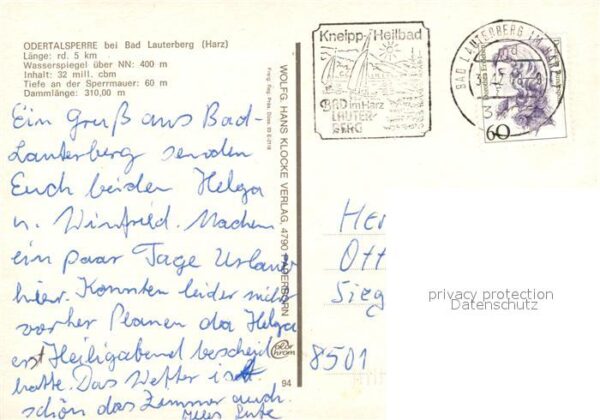 ODERTALSPERRE bei Bad Lauterberg (Harz)
Länge: rd. 5 km
Wasserspiegel über NN: 400 m
Inhalt: 32 mill. cbm
Tiefe an der Sperrmauer: 60 m
Dammlänge: 310,00 m
Ein Gruß aus Bad-
Lauterberg senden
Euch beiden Helga
u. Winfried. Machen
ein paar Tage Urlaub
hier. Konnten leider nicht
vorher Planen da Helga
erst Heiligabend bescheid
hatte. Das Wetter ist
schön das Zimmer auch.
Alles Gute
WOLFG. HANS KLOCKE VERLAG, 4790 PADERBORN
94
Kneipp-Heilbad
BAD im Harz
LAUTER-
BERG
BAD LAUTERBERG IM HARZ
60
Her
Ott
Sieg
8501
privacy protection
Datenschutz